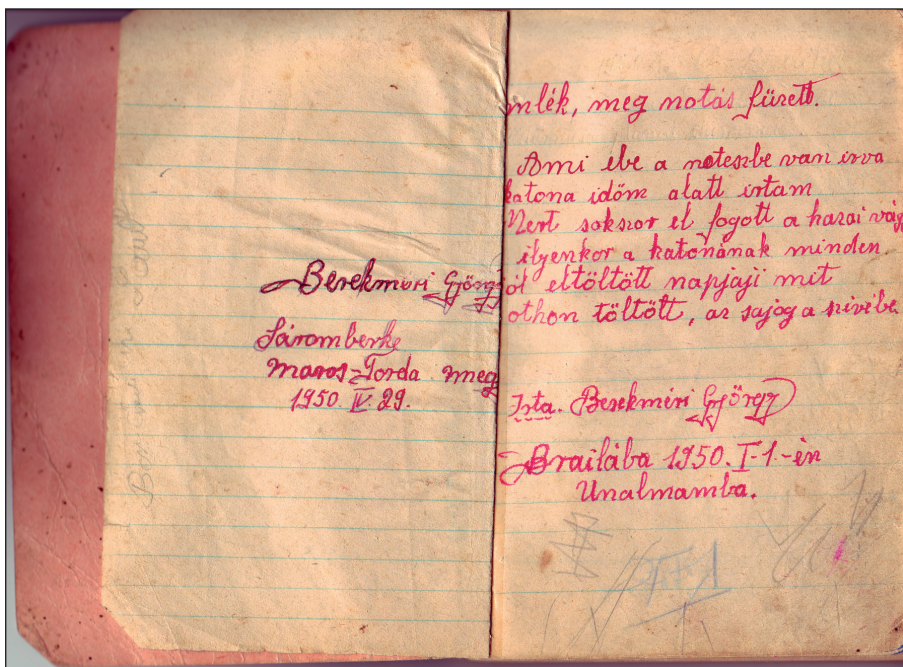 Berekméri György
Sáromberke
Maros-Torda meg
1950. IV. 29.
mlék, meg notás fürett.
Ami ebe a noteszbe van irva
katona időm alatt irtam
Mert sokszor el fogott a hazai vágy
ilyenkor a katonának minden
ól eltöltött napjaji mit
othon töltött, az sajog a szivébe.
Irta. Berekméri György
Brailába 1950. I-1.-én
Unalmamba.